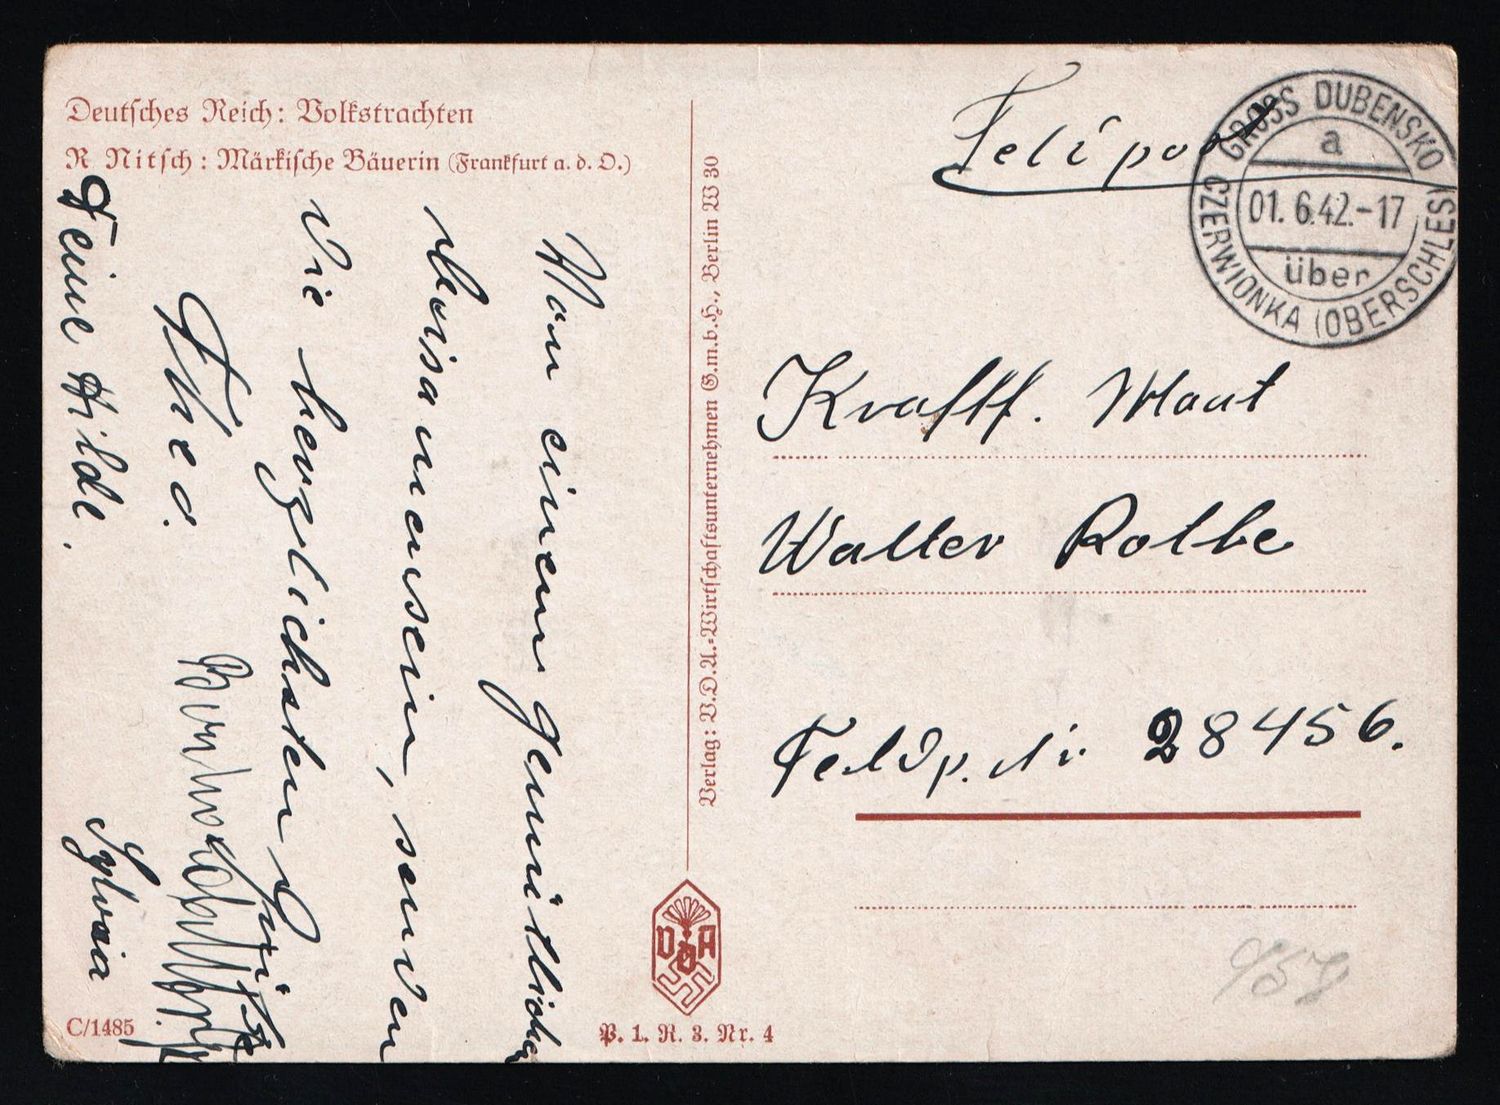 Deutsches Reich: Volkstrachten
R Nitsch: Märkische Bäuerin (Frankfurt a. d. O.)
Von einem gemütlichen
Beisammensein, senden
die herzlichsten Grüße
Theo.
Deine Hilde.
Sylvia
C/1485
Verlag: V.D.A.-Wirtschaftsunternehmen G.m.b.H., Berlin W 30
VDA
P. 1. R. 3. Nr. 4
Feldpost
GROSS DUBENSKO
a
01.6.42.-17
über
CZERWIONKA (OBERSCHLES)
Kraftf. Maat
Walter Rothe
Feldp. Nr 28456.